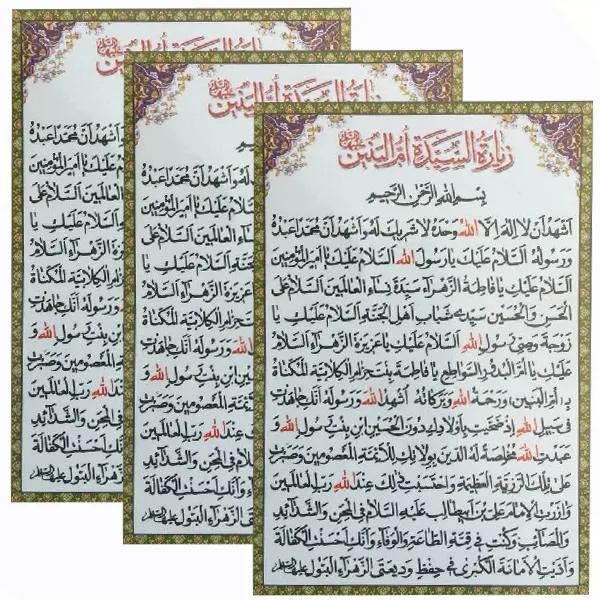 زيارة السيدة أم البنين عليها السلام
بسم الله الرحمن الرحيم
اشهد أن لا إله إلا الله وحده لا شريك له وأشهد أن محمدا عبده
ورسوله السلام عليك يا رسول الله السلام عليك يا أمير المؤمنين
السلام عليك يا فاطمة الزهراء سيدة نساء العالمين السلام على
الحسن والحسين سيدي شباب أهل الجنة السلام عليك يا
زوجة وصي رسول الله السلام عليك يا عزيزة الزهراء السلام
عليك يا أم البدور السواطع يا فاطمة بنت حزام الكلابية المكناة
بـ: أم البنين؛ ورحمة الله وبركاته أشهد الله ورسوله أنك جاهدت
في سبيل الله إذ ضحيت بأولادك دون الحسين ابن بنت رسول الله و
عبدت الله مخلصة له الدين بولائك للأئمة المعصومين وصبرت
على تلك الرزية العظيمة واحتسبت ذلك عند الله رب العالمين
وآزرت الإمام علي بن أبي طالب عليه السلام في المحن والشدائد
والمصائب وكنت في قمة الطاعة والوفاء وأنك أحسنت الكفالة
وأديت الأمانة الكبرى في حفظ وديعتي الزهراء البتول عليها السلام